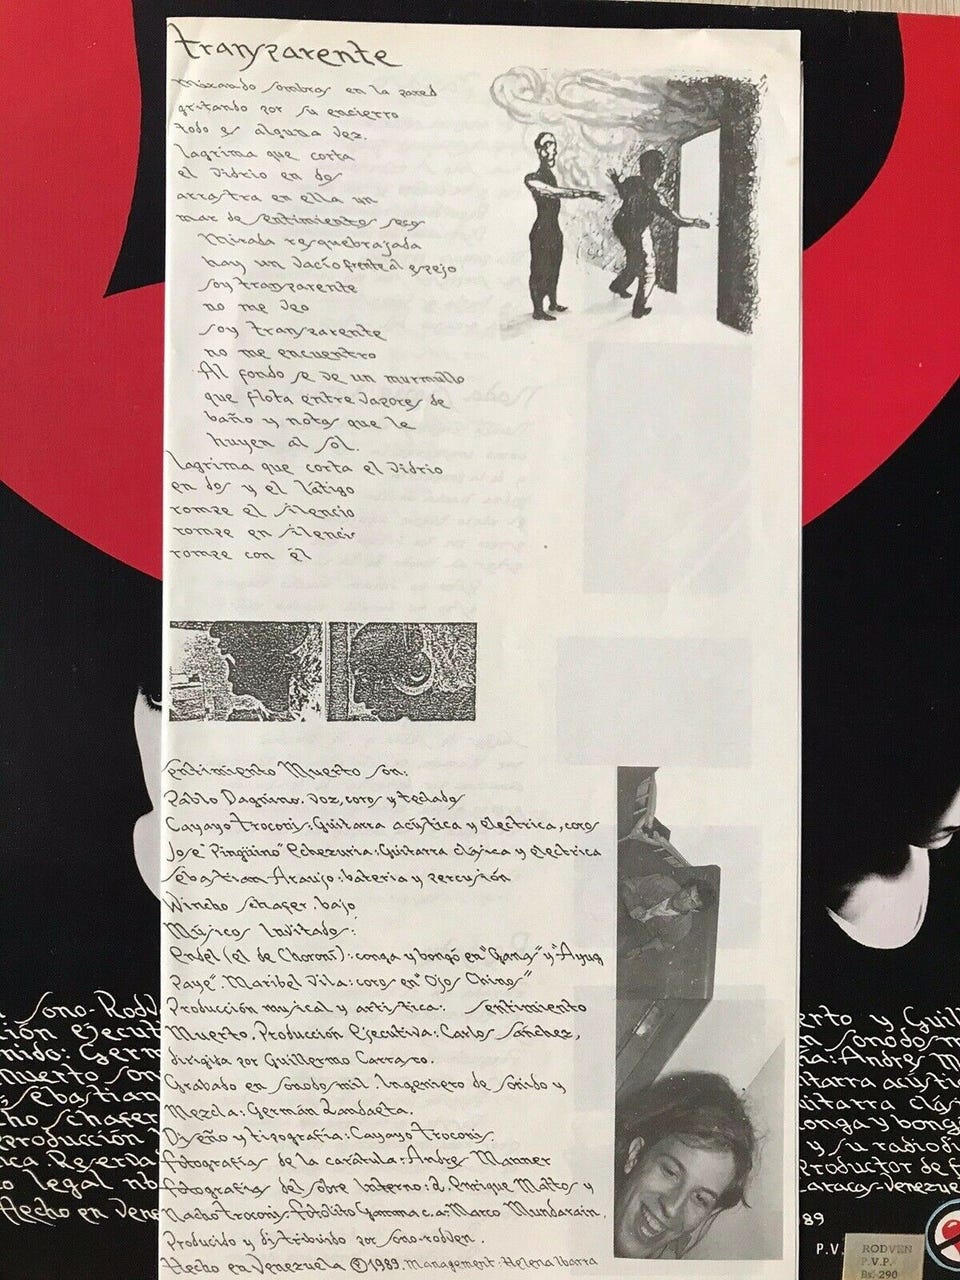 transparente
Mirando sombras en la pared
gritando por su encierro
todo es alguna vez.
lagrima que corta
el vidrio en dos
arrastra en ella un
mar de sentimientos secos
Mirada resquebrajada
hay un vacío frente al espejo
soy transparente
no me veo
soy transparente
no me encuentro
Al fondo se ve un murmullo
que flota entre vapores de
baño y notas que le
huyen al sol.
lagrima que corta el vidrio
en dos y el látigo
rompe el silencio
rompe en silencio
rompe con él
Sentimiento Muerto son:
Pablo Dagnino. voz, coros y teclados
Cayayo troconis: Guitarra acústica y electrica, coros
Jose "Pingüino" Echezuria: Guitarra clásica y electrica
Sebastian Araujo: bateria y percusión
Wincho Schafer. bajo
Músicos Invitados:
Endel (el de Choroní): conga y bongó en "Gang" y "Ayug
Paye". Maribel Vila: coros en "Ojos Chinos"
Producción musical y artistica: Sentimiento
Muerto. Producción Ejecutiva: Carlos Sánchez,
dirigita por Guillermo Carrasco.
Grabado en sonodosmil. Ingeniero de sonido y
Mezcla: Germán Landaeta.
Diseño y tipografía: Cayayo troconis.
fotografias de la carátula: Andres Manner
fotografias del sobre Interno: 2. Enrique Mattos y
Nacho troconis. fotolito Gamma c.a: Marco Mundarain.
Producido y distribuido por sono-rodven.
Hecho en Venezuela Ⓟ1989. Management: Helena Ibarra
Sono-Rodve
ión Ejecuti
nido: Germ
Muerto son
Sebastian
ho Schafer
Producción
ca. Reserva
o legal nb
Hecho en Vene
erto y Guill
n sonodosm
ía: Andres M
uitarra acústi
uitarra clás
onga y bong
y su radiodi
Productor de f
aracas-Venezue
89
P.V.
RODVEN
P.V.P.
Bs. 290